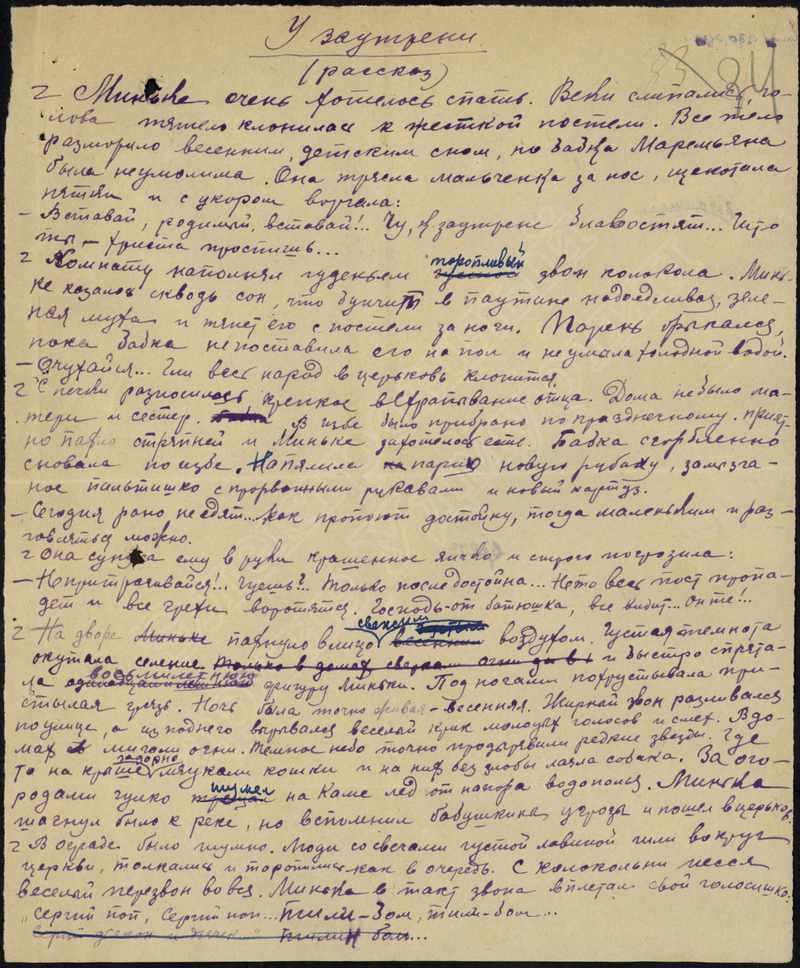 У заутрени
(рассказ)
Миньке очень хотелось спать. Веки слипались, го-
лова тяжело клонилась к жесткой постели. Все тело
разморило весенним, детским сном, но бабка Маремьяна
была неумолима. Она трясла мальченка за нос, щекотала
пятки и с укором ворчала:
– Вставай, родимый, вставай!.. Чу, к заутрене благовостят... Што
ты – Христа проспишь...
Комнату наполнял гуденьем торопливый звон колокола. Минь-
ке казалось сквозь сон, что бунчит в паутине надоедливая, зеле-
ная муха и тянет его с постели за ноги. Парень брыкался,
пока бабка не поставила его на пол и не умыла холодной водой.
– Очухайся... Гли весь народ в церьковь клонится.
С печки разносилось крепкое всхрапывание отца. Дома не было ма-
тери и сестер. В избе было прибрано по праздничному. Прият-
но пахло стряпней и Миньке захотелось есть. Бабка сгорбленно
сновала по избе. Напялила парню новую рубаху, замызга-
ное пальтишко с прорванными рукавами и новый картуз.
– Сегодня рано не едят... Как пропоют достойну, тогда маленьким и раз-
говляться можно.
Она сунула ему в руки крашенное яичко и строго погрозила:
– Не притрагивайся!.. Чуешь?.. Только после достойна... Не то весь пост пропа-
дет и все грехи воротятся. Господь-от батюшка, все видит... Он те!..
На дворе пахнуло в лицо свежим воздухом. Густая темнота
окутала селение и быстро спрята-
ла восьмилетнюю фигуру Миньки. Под ногами похрустывала при-
стылая грязь. Ночь была точно живая – весенняя. Жирный звон разливался
по улице, а из под него вырвался веселый крик молодых голосов и смех. В до-
мах мигали огни. Темное небо точно продырявили редкие звезды. Где
то на крыше задорно мяукали кошки и на них без злобы лаяла собака. За ого-
родами гулко шумел на Каме лед от напора водополья. Минька
шагнул было к реке, но вспомнил бабушкины угрозы и пошел в церьковь.
В ограде было шумно. Люди со свечами густой лавиной шли вокруг
церкви, толкались и торопились как в очередь. С колокольни несся
веселый перезвон во вся. Минька в такт звона вплетал свой голосишко:
„Сергий поп, Сергий поп... Тили-бом, тили-бом...